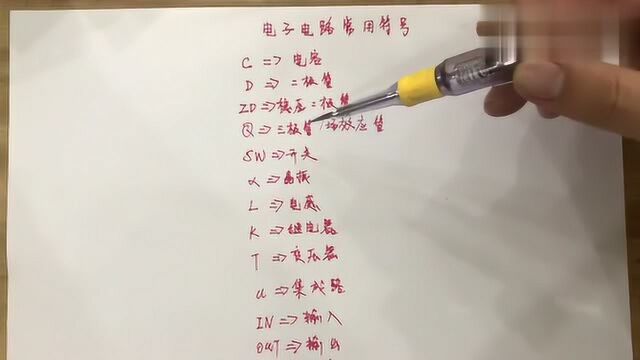 电子电路常用符号
C => 电容
D => 二极管
ZD => 稳压二极管
Q => 三极管/场效应管
SW => 开关
X => 晶振
L => 电感
K => 继电器
T => 变压器
U => 集成路
IN => 输入
OUT => 输出